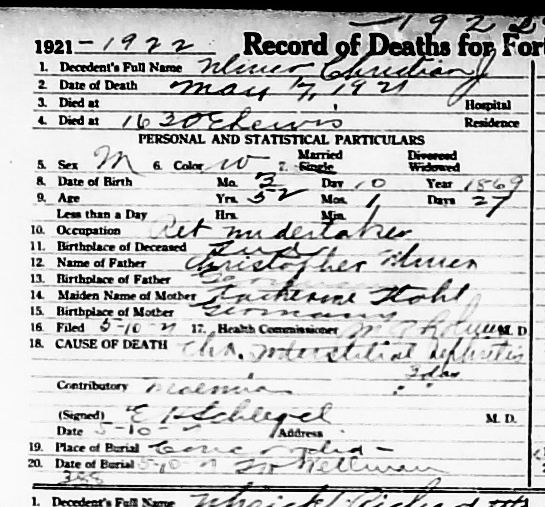 1921-1922 Record of Deaths for Fort
1. Decedent's Full Name Christian J
2. Date of Death May 7, 1921
3. Died at Hospital
4. Died at 1630 E Lewis Residence
PERSONAL AND STATISTICAL PARTICULARS
5. Sex M 6. Color W 7. Married Single Divorced Widowed
8. Date of Birth Mo. 3 Day 10 Year 1869
9. Age Yrs. 52 Mos. 1 Days 27
Less than a Day Hrs. Min.
10. Occupation Ret undertaker
11. Birthplace of Deceased Ind
12. Name of Father Christopher
13. Birthplace of Father
14. Maiden Name of Mother Katherine Stohl
15. Birthplace of Mother Germany
16. Filed 5-10-21 17. Health Commissioner M. D.
18. CAUSE OF DEATH Chr. Interstitial Nephritis
3 da
Contributory
(Signed) E Schlegel M. D.
Date 5-10- Address
19. Place of Burial Concordia
20. Date of Burial 5-10-21 Wellman
388
1. Decedent's Full Name